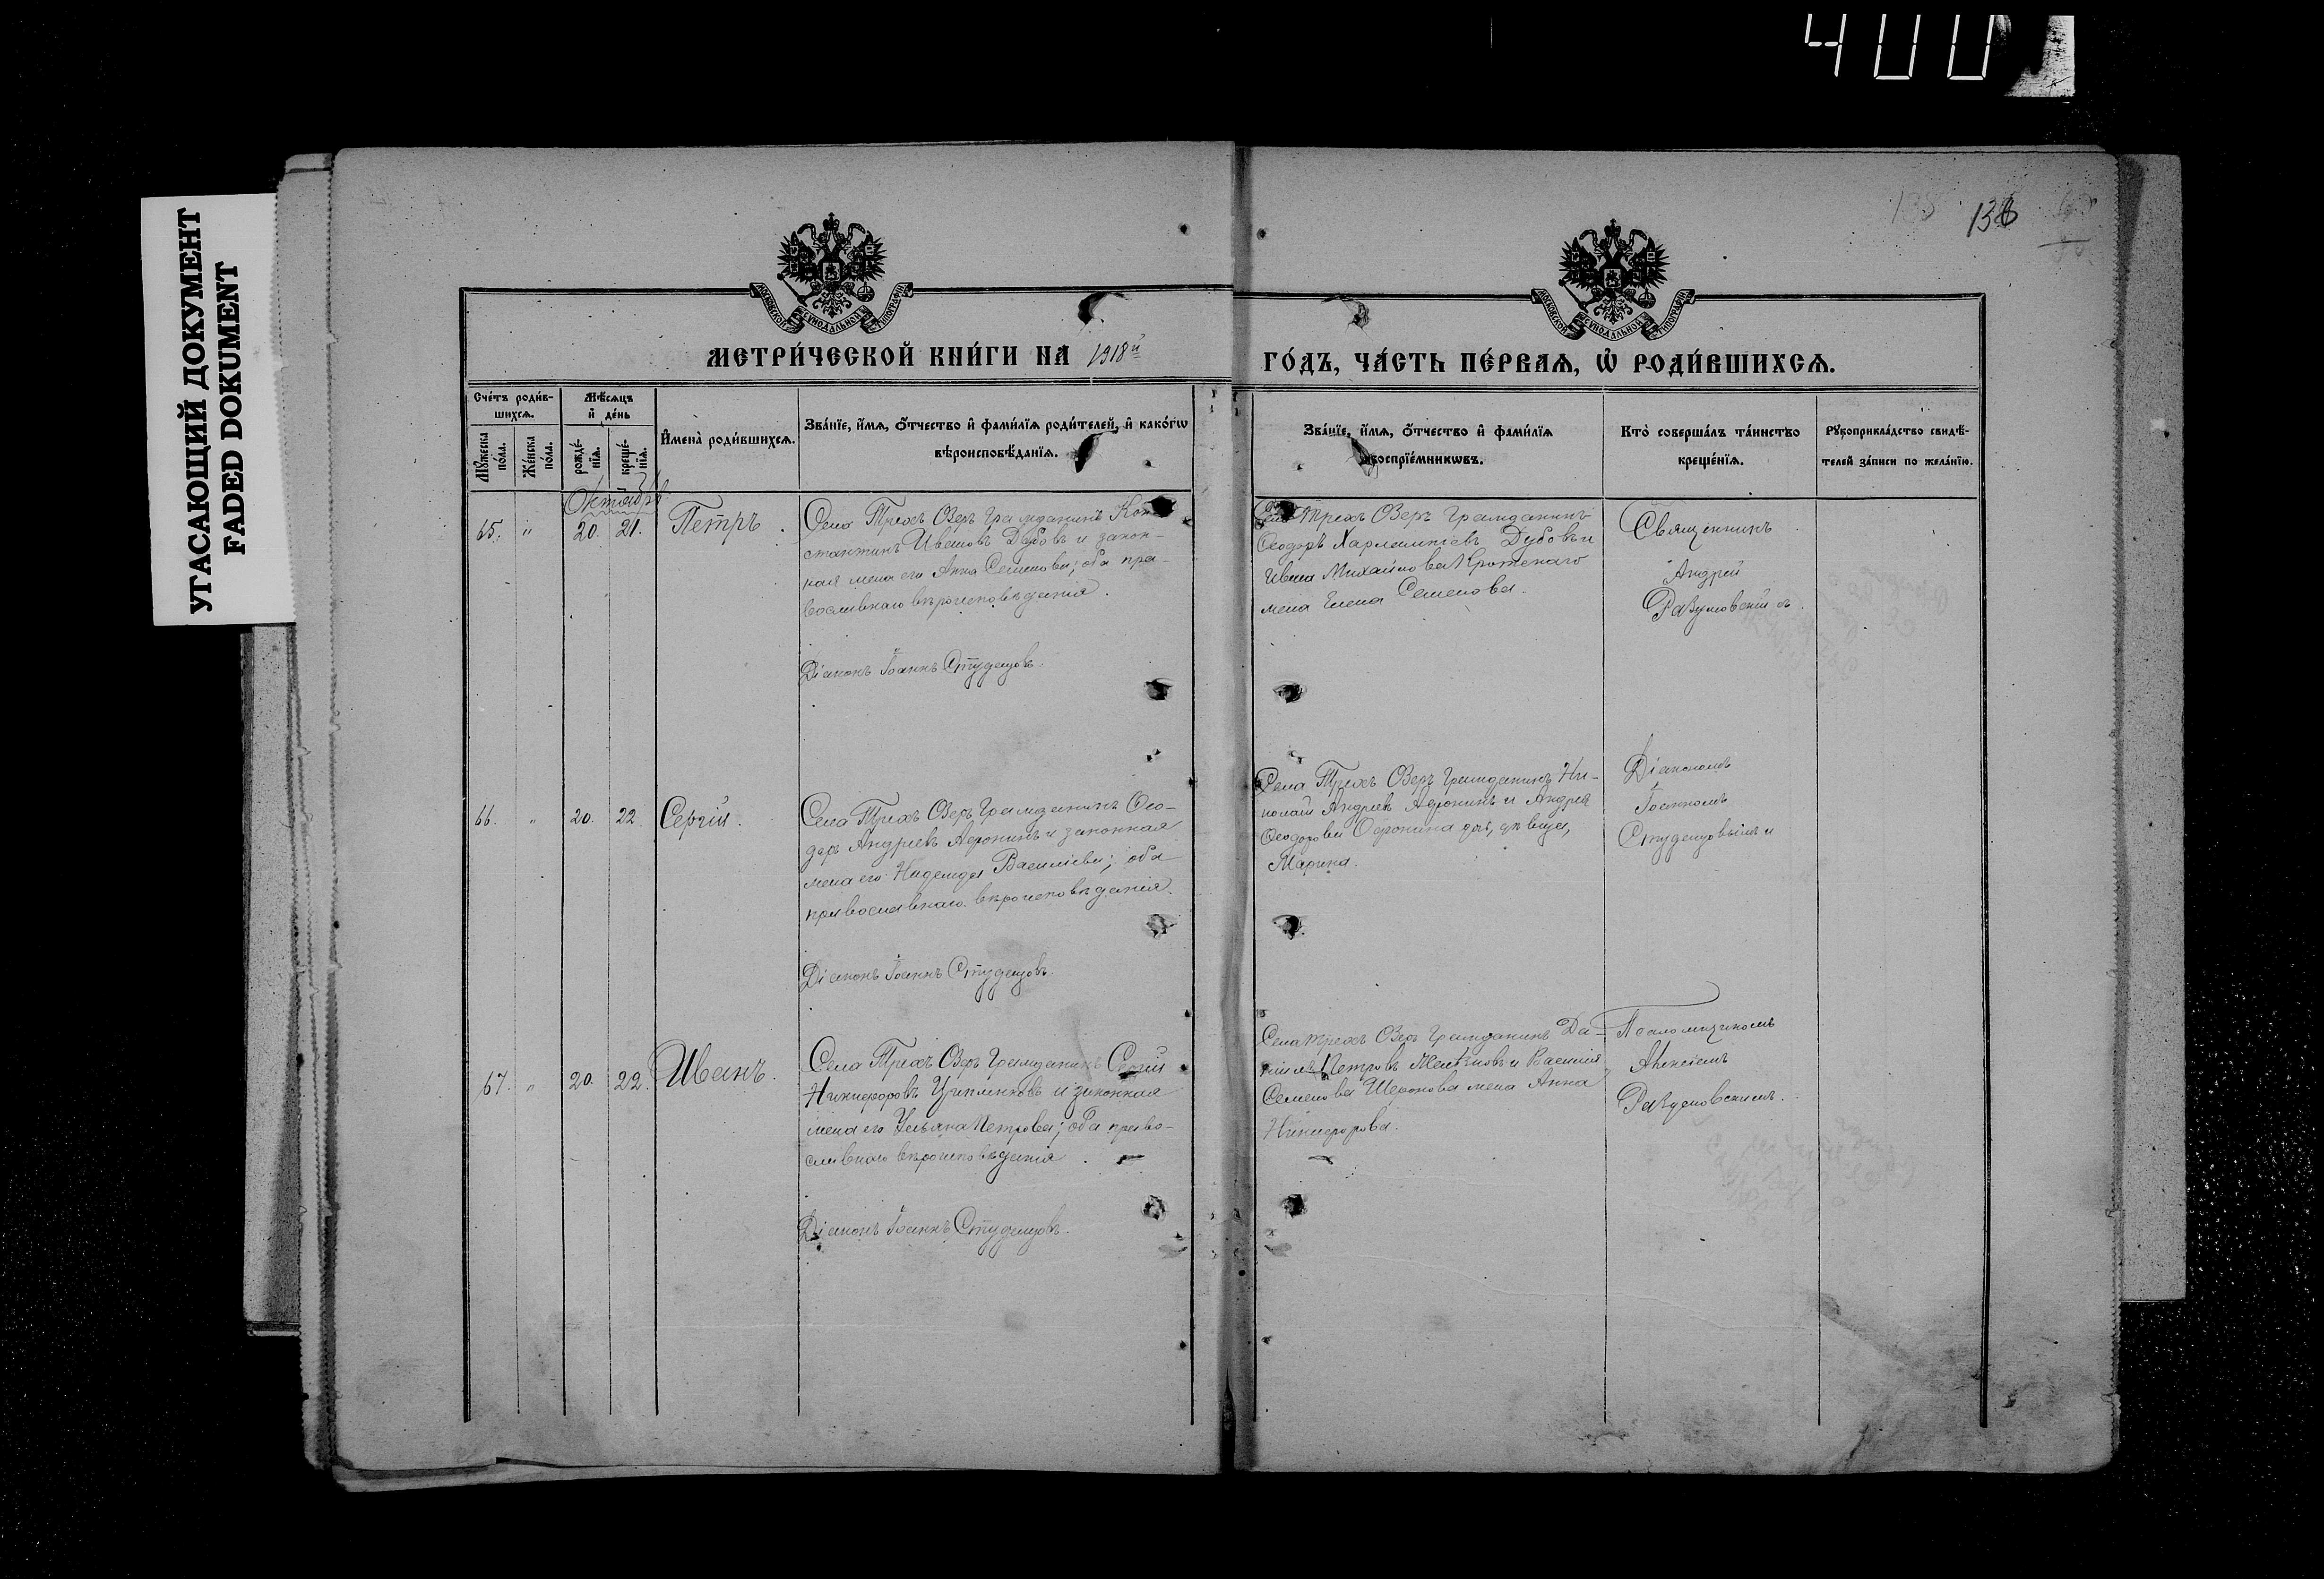 400
УГАСАЮЩИЙ ДОКУМЕНТ
FADED DOKUMENT
138
МОСКОВСКОЙ СѴНОДАЛЬНОЙ ТИПОГРАФІИ
МОСКОВСКОЙ СѴНОДАЛЬНОЙ ТИПОГРАФІИ
МЕТРИ́ЧЕСКОЙ КНИ́ГИ НА 1918й
ГО́ДЪ, ЧА́СТЬ ПЕ́РВАѦ, Ѡ҆ РОДИ́ВШИХСѦ.
Сче́тъ роди́в-
шихсѧ.
Мꙋ́жеска по́ла.
Же́нска по́ла.
Мѣ́сѧцъ
и҆ де́нь
рожде́-
нїѧ.
креще́-
нїѧ.
И҆мена̀ роди́вшихсѧ.
Зва́нїе, и҆́мѧ, ѻ҆́тчество и҆ фами́лїѧ роди́телей, и҆ како́гѡ
вѣроисповѣ́данїѧ.
Зва́нїе, и҆́мѧ, ѻ҆́тчество и҆ фами́лїѧ
воспрїе́мникѡвъ.
Кто̀ соверша́лъ та́инство
креще́нїѧ.
Рꙋкоприкла́дство свидѣ́-
телей за́писи по жела́нїю.
Октябрь
65. " 20. 21. Петръ.
Села Трехъ Озеръ гражданинъ Кон-
стантинъ Ивановъ Дубовъ и закон-
ная жена его Анна Семенова; оба пра-
вославнаго вѣроисповѣданія.
Діаконъ Іоаннъ Студенцовъ.
Села Трехъ Озеръ гражданинъ
Ѳеодоръ Харлампіевъ Дубовъ и
Ивана Михайлова Кротскаго
жена Елена Семенова.
Священникъ
Андрей
Разумовскій
66. " 20. 22 Сергій.
Села Трехъ Озеръ гражданинъ Ѳео-
доръ Андреевъ Афонинъ и законная
жена его Надежда Васильева; оба
православнаго вѣроисповѣданія.
Діаконъ Іоаннъ Студенцовъ.
Села Трехъ Озеръ гражданинъ Ни-
колай Андреевъ Афонинъ и Андрея
Ѳеодорова Афонина дочь, дѣвица,
Марина.
Діакономъ
Іоанномъ
Студенцовымъ и
67. " 20. 22. Иванъ.
Села Трехъ Озеръ гражданинъ Сергій
Никифоровъ и законная
жена его Ульяна Петрова; оба право-
славнаго вѣроисповѣданія.
Діаконъ Іоаннъ Студенцовъ.
Села Трехъ Озеръ гражданинъ Да-
ніилъ Петровъ и Василія
Семенова жена Анна
Никифорова.
Псаломщикомъ
Алексіемъ
Разумовскимъ.